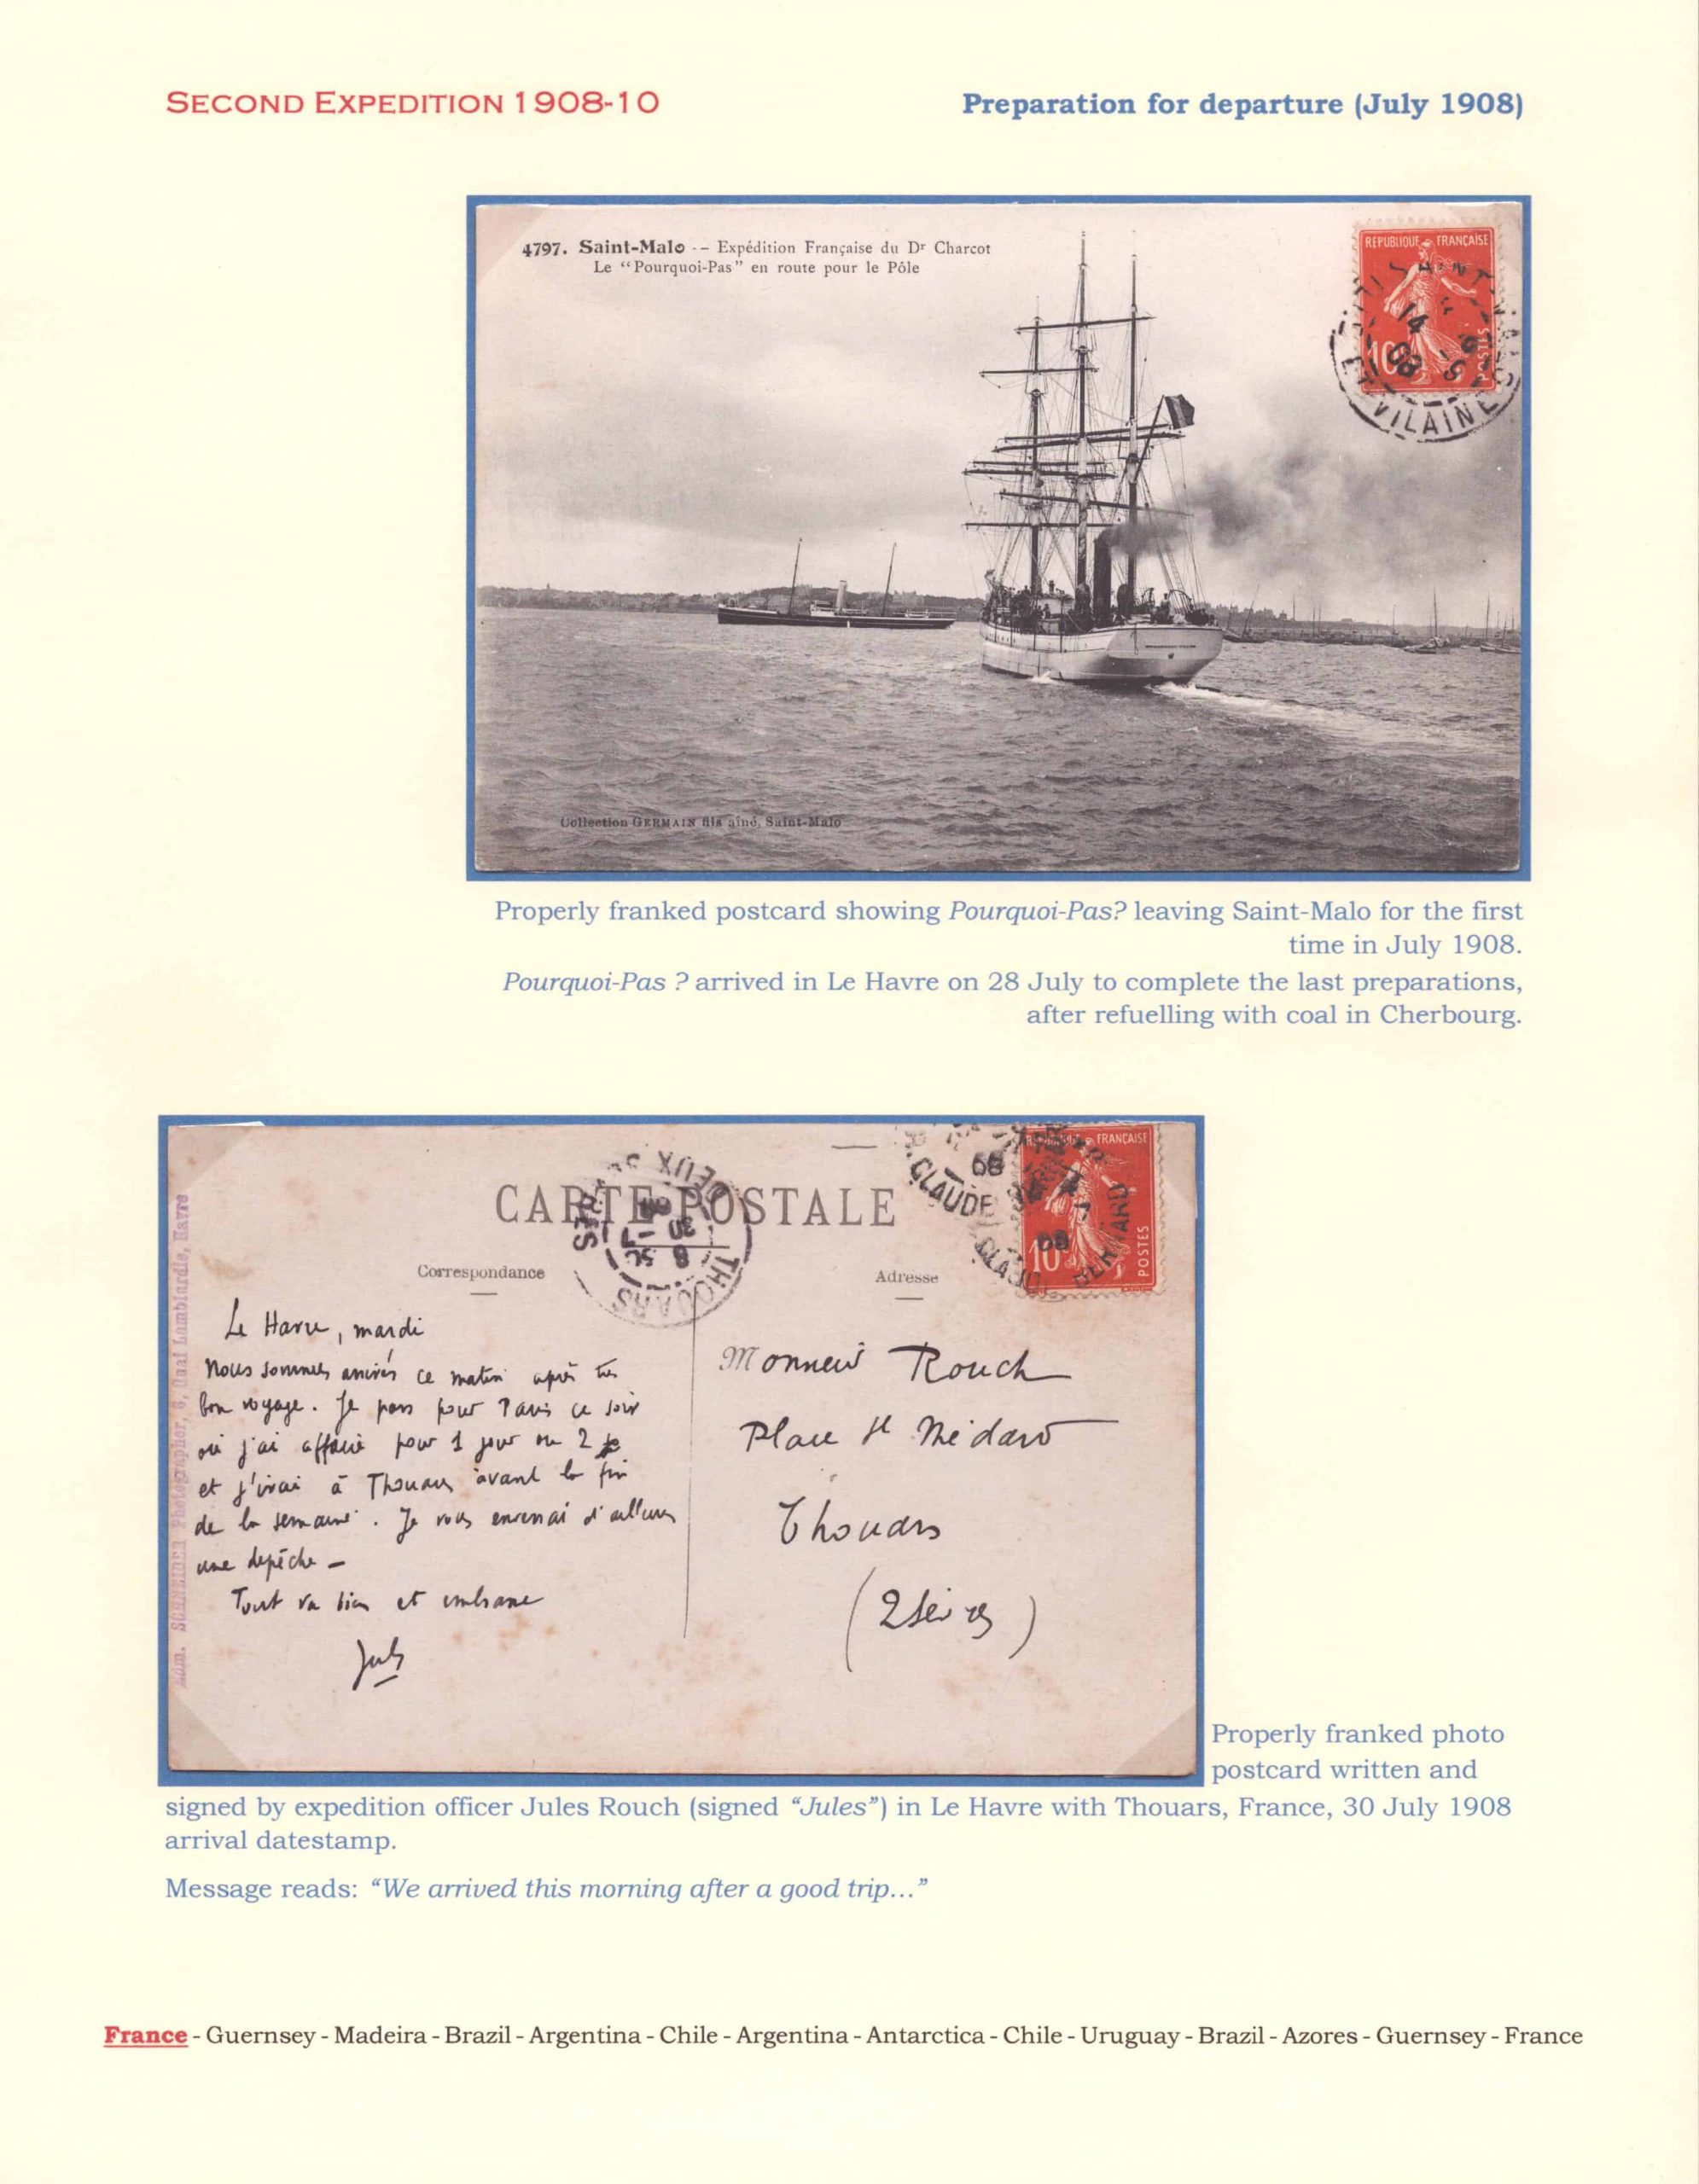 SECOND EXPEDITION 1908-10
Preparation for departure (July 1908)
4797. Saint-Malo -- Expédition Française du Dr Charcot
Le "Pourquoi-Pas" en route pour le Pôle
REPUBLIQUE FRANÇAISE
SAINT
14
08
10
POSTES
ET VILAINE
Collection GERMAIN fils aîné, Saint-Malo
Properly franked postcard showing Pourquoi-Pas? leaving Saint-Malo for the first
time in July 1908.
Pourquoi-Pas ? arrived in Le Havre on 28 July to complete the last preparations,
after refuelling with coal in Cherbourg.
CARTE POSTALE
Correspondance
Adresse
DEUX SÈVRES
THOUARS
30 -7
FRANÇAISE
CLAUDE
BERNARD
08
10
POSTES
SCHNEIDER Photographer, 6, Quai Lamblardie, Havre
Le Havre, mardi
Nous sommes arrivés ce matin après très
bon voyage. Je pars pour Paris ce soir
où j'ai affaire pour 1 jour ou 2
et j'irai à Thouars avant la fin
de la semaine. Je vous enverrai d'ailleurs
une depêche –
Tout va bien et embrasse
Jules
Monsieur Rouch
Place St Médard
Thouars
(2 Sèvres)
Properly franked photo
postcard written and
signed by expedition officer Jules Rouch (signed "Jules") in Le Havre with Thouars, France, 30 July 1908
arrival datestamp.
Message reads: "We arrived this morning after a good trip..."
France - Guernsey - Madeira - Brazil - Argentina - Chile - Argentina - Antarctica - Chile - Uruguay - Brazil - Azores - Guernsey - France